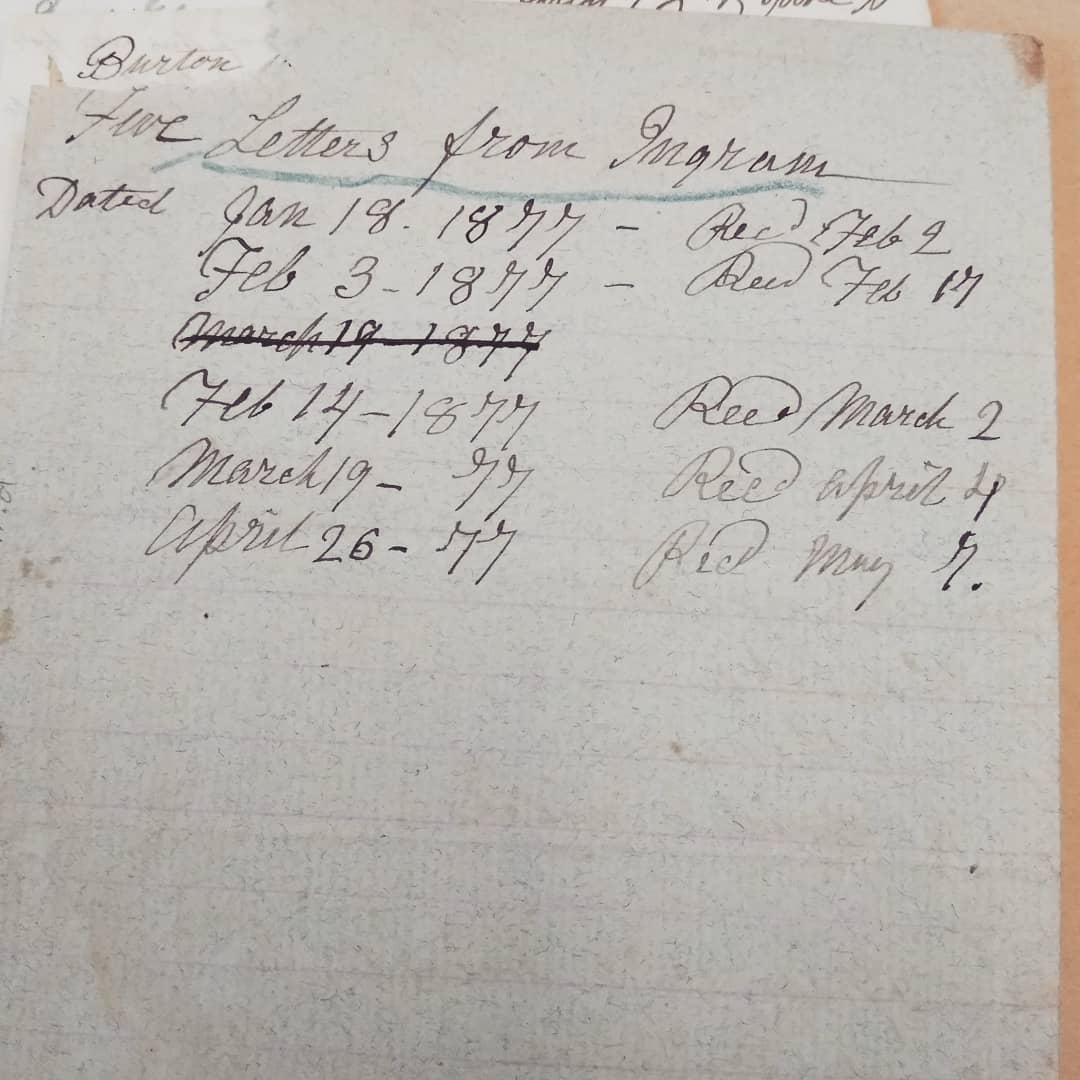 Burton
Five Letters from Ingram
Dated Jan 18. 1877 - Recd Feb 2
Feb 3 - 1877 - Recd Feb 17
March 19 - 1877
Feb 14 - 1877 Recd March 2
March 19 - 77 Recd April 4
April 26 - 77 Recd May 7.